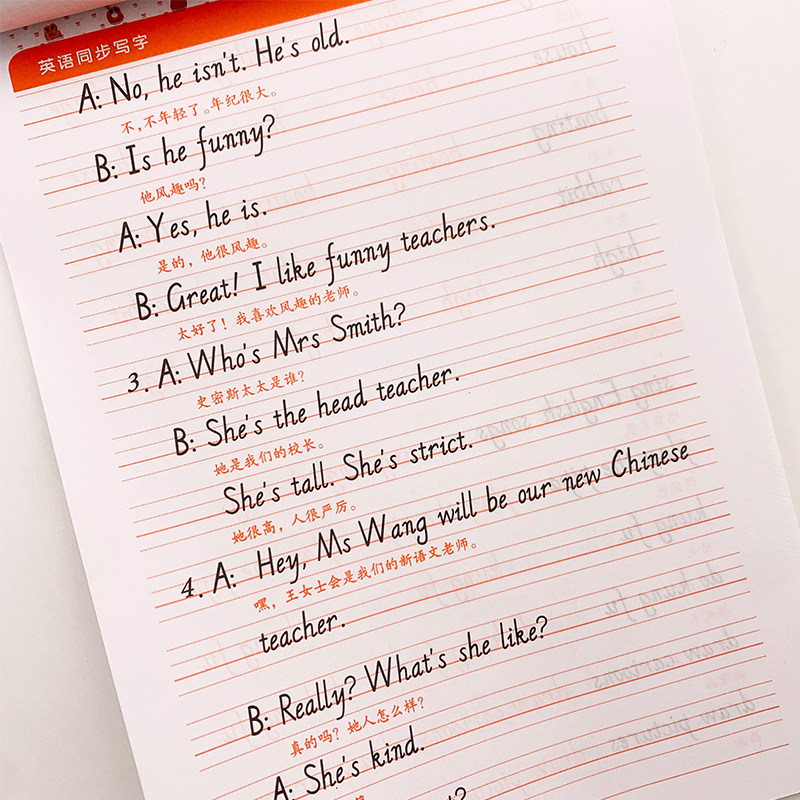 英语同步写字
A: No, he isn't. He's old.
不,不年轻了。年纪很大。
B: Is he funny?
他风趣吗?
A: Yes, he is.
是的,他很风趣。
B: Great! I like funny teachers.
太好了!我喜欢风趣的老师。
3. A: Who's Mrs Smith?
史密斯太太是谁?
B: She's the head teacher.
她是我们的校长。
She's tall. She's strict.
她很高,人很严厉。
4. A: Hey, Ms Wang will be our new Chinese
嘿,王女士会是我们的新语文老师。
teacher.
B: Really? What's she like?
真的吗?她人怎么样?
A: She's kind.